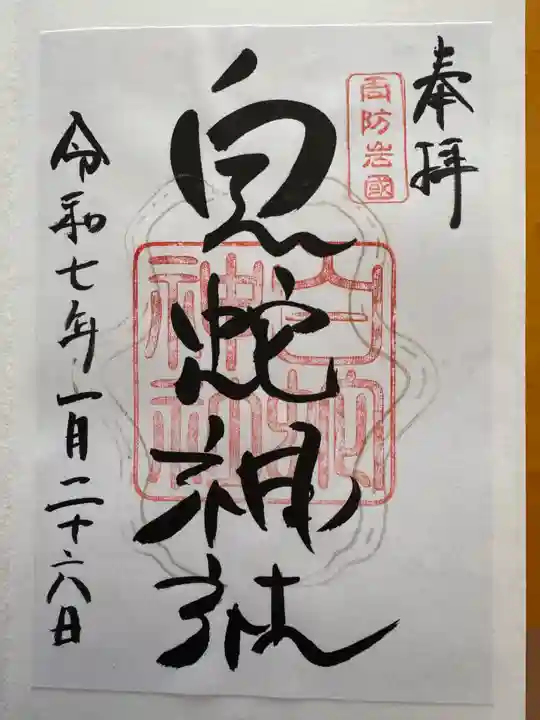 奉拝
周防岩國
白蛇神社
白蛇神社
令和七年一月二十六日